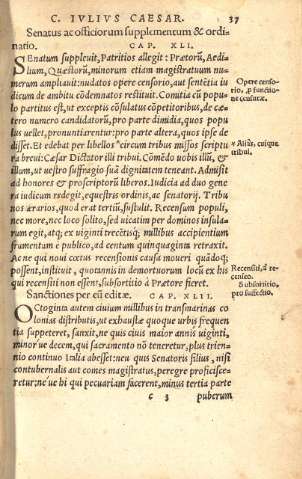 C. IVLIVS CAESAR. 37
Senatus ac officiorum supplementum & ordi
natio. CAP. XLI.
SEnatum suppleuit, Patritios allegit: Prætorũ, Aedi
lium, Quæstorũ, minorum etiam magistratuum nu=
merum ampliauit: nudatos opere censorio, aut sentẽtia iu
dicum de ambitu cõdemnatos restituit. Comitia cũ popu
lo partitus est, ut exceptis cõsulatus cõpetitoribus, de cæ=
tero numero candidatorũ, pro parte dimidia, quos popu
lus uellet, pronuntiarentur: pro parte altera, quos ipse de
disset. Et edebat per libellos* circum tribus missos scriptu
ra breui: Cæsar Dictator illi tribui. Cõmẽdo uobis illũ, &
illum, ut uestro suffragio suã dignitatem teneant. Admisit
ad honores & proscriptorũ liberos. Iudicia ad duo gene
ra iudicum redegit, equestris ordinis, ac senatorij. Tribu
nos ærarios, quod erat tertiũ, sustulit. Recensum populi,
nec more, nec loco solito, sed uicatim per dominos insula
rum egit, atq; ex uiginti trecẽtisq; millibus accipientium
frumentum e publico, ad centum quinquaginta retraxit.
Ac ne qui noui cœtus recensionis causa moueri quãdoq;
possent, instituit, quotannis in demortuorum locũ ex his
qui recensiti non essent, subsortitio à Prætore fieret.
Sanctiones per eũ editæ. CAP. XLII.
OCtoginta autem ciuium millibus in transmarinas co
lonias distributis, ut exhaustæ quoque urbis frequen
tia suppeteret, sanxit, ne quis ciuis maior annis uiginti,
minor ue decem, qui sacramento nõ teneretur, plus trien=
nio continuo Italia abesset: neu quis Senatoris filius, nisi
contubernalis aut comes magistratus, peregre proficisce=
retur: ne ue hi qui pecuariam facerent, minus tertia parte
c 3 puberum
Opere censo=
rio, .p functio=
ne censuræ.
* Aliâs, cuiusque
tribui.
Recensiti,
recenseo.
Subsortitio,
pro suffectio.